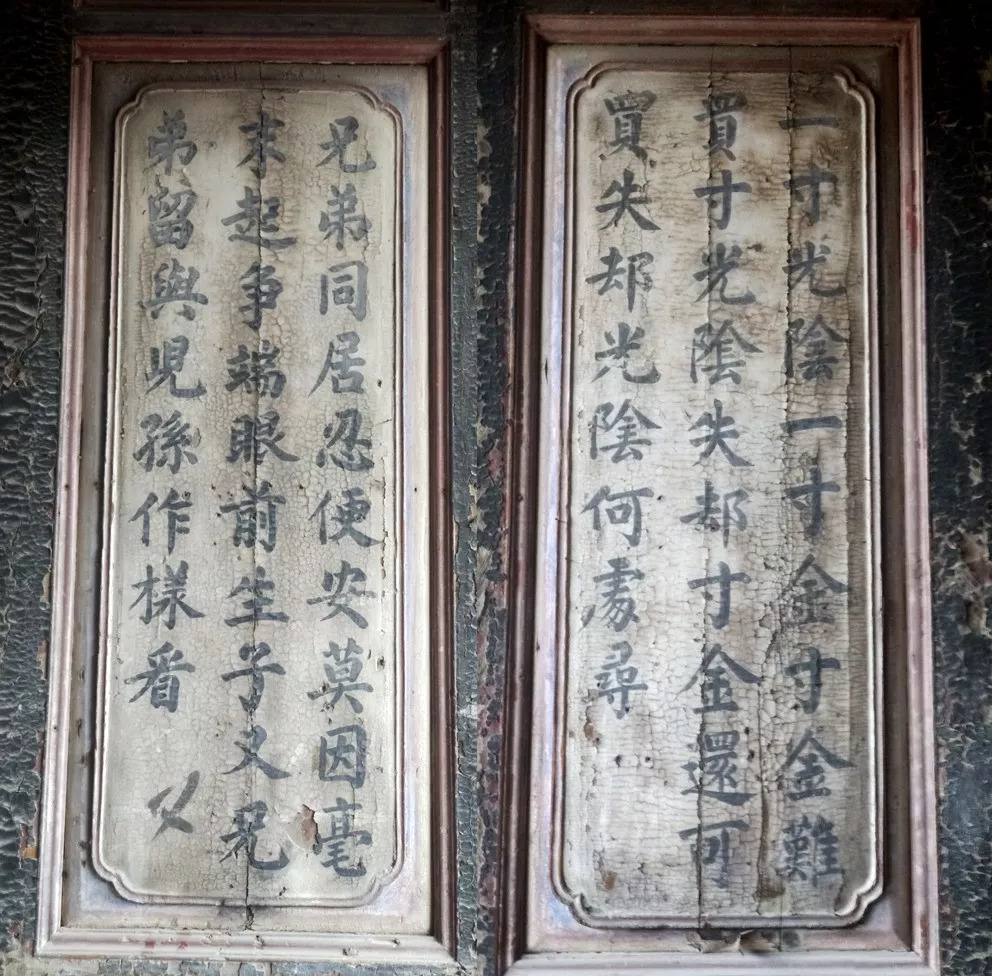 一寸光陰一寸金寸金難
買寸光陰失却寸金還可
買失却光陰何處尋
兄弟同居忍便安莫因毫
末起爭端眼前生子又兄
弟留與兒孫作樣看